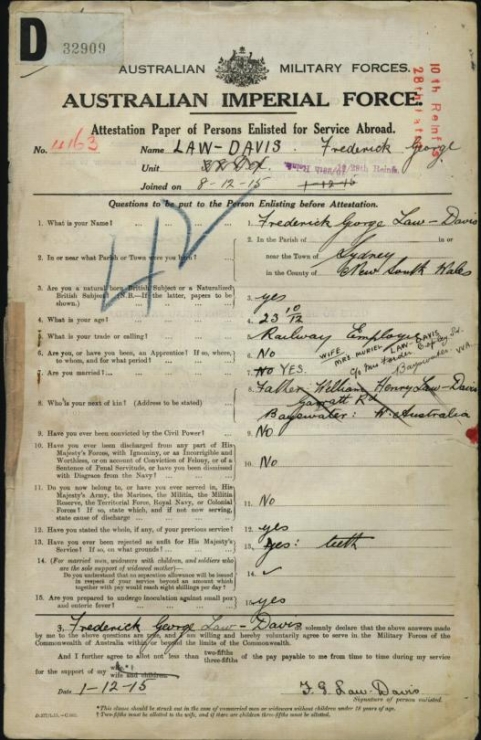 D 32909
AUSTRALIAN MILITARY FORCES.
AUSTRALIAN IMPERIAL FORCE.
10th Reinfs
28th Batt
Attestation Paper of Persons Enlisted for Service Abroad.
No. 4163 Name LAW-DAVIS. Frederick George
Unit 10/28th Reinf.
Joined on 8-12-15 1-12-15
Questions to be put to the Person Enlisting before Attestation.
42
1. What is your Name? ... 1. Frederick Gorge Law-Davis
2. In or near what Parish or Town were you born? ... 2. In the Parish of in or
near the Town of Sydney
in the County of New South Wales
3. Are you a natural born British Subject or a Naturalized
British Subject? (N.B.—If the latter, papers to be
shown.) 3. yes
4. What is your age? 4. 23 10/12
5. What is your trade or calling? 5. Railway Employee
6. Are you, or have you been, an Apprentice? If so, where,
to whom, and for what period? 6. No
WIFE MRS MURIEL LAW-DAVIS
c/o Mrs
Bayswater W.A.
7. Are you married? ... 7. NO YES.
8. Who is your next of kin? (Address to be stated) 8. Father William Henry Law-Davis
Garratt Rd
Bayswater: W. Australia
9. Have you ever been convicted by the Civil Power? ... 9. No
10. Have you ever been discharged from any part of His
Majesty's Forces, with Ignominy, or as Incorrigible and
Worthless, or on account of Conviction of Felony, or of a
Sentence of Penal Servitude, or have you been dismissed
with Disgrace from the Navy? ... 10. No
11. Do you now belong to, or have you ever served in, His
Majesty's Army, the Marines, the Militia, the Militia
Reserve, the Territorial Force, Royal Navy, or Colonial
Forces? If so, state which, and if not now serving,
state cause of discharge ... 11. No
12. Have you stated the whole, if any, of your previous service? 12. yes
13. Have you ever been rejected as unfit for His Majesty's
Service? If so, on what grounds? ... 13. yes: teeth
14. (For married men, widowers with children, and soldiers who
are the sole support of widowed mother)—
Do you understand that no separation allowance will be issued
in respect of your service beyond an amount which
together with pay would reach eight shillings per day? 14. ✓
15. Are you prepared to undergo inoculation against small pox
and enteric fever? ... 15. yes
3. Frederick Gorge Law-Davis solemnly declare that the above answers made
by me to the above questions are true, and I am willing and hereby voluntarily agree to serve in the Military Forces of the
Commonwealth of Australia within or beyond the limits of the Commonwealth.
And I further agree to allot not less than two-fifths three-fifths of the pay payable to me from time to time during my service
for the support of my wife*† wife and children
Date 1-12-15 F. G. Law-Davis
Signature of person enlisted.
*This clause should be struck out in the case of unmarried men or widowers without children under 18 years of age.
† Two-fifths must be allotted to the wife, and if there are children three-fifths must be allotted.